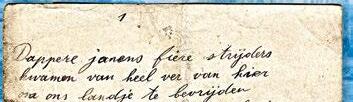 1
Dappere janens fiere strijders
kwamen van heel ver van hier
om ons landje te bevrijden